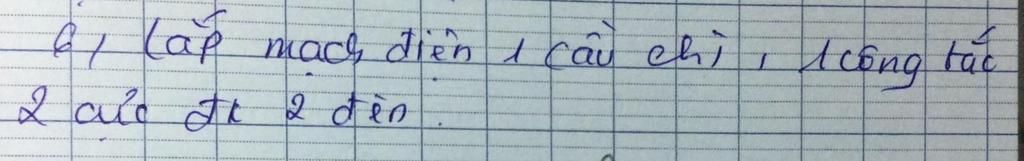 6, Lắp mạch điện 1 cầu chì, 1 công tắc
2 cực đk 2 đèn.